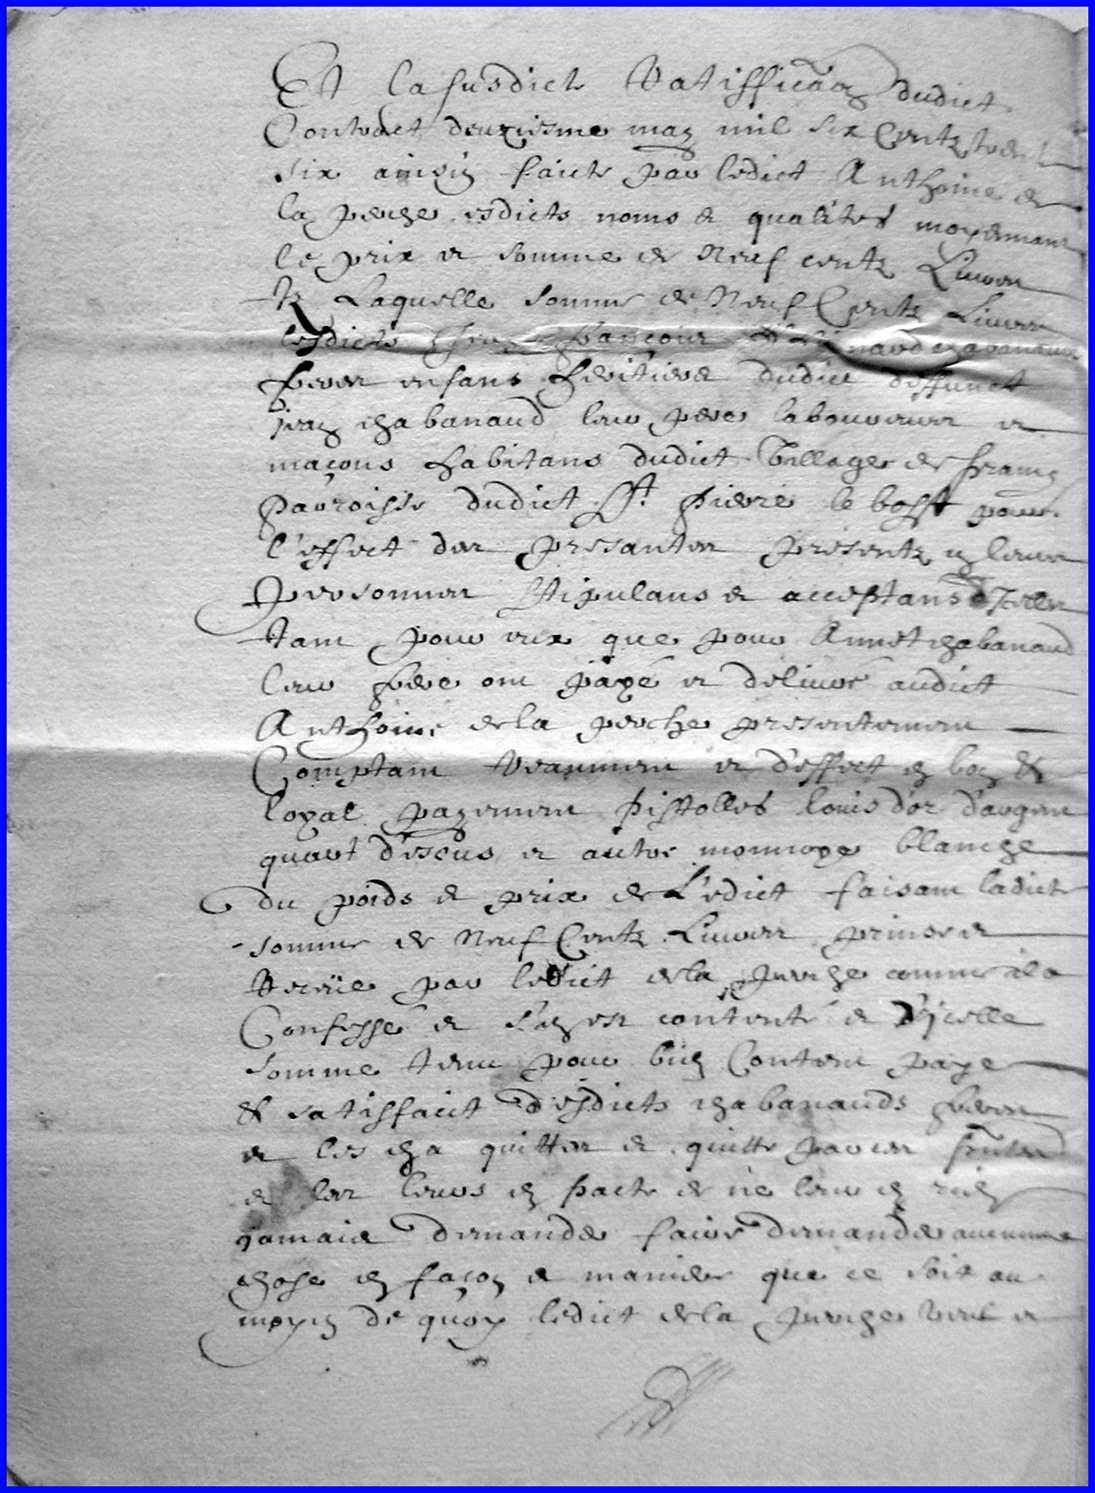 Et la susdicte Ratiffica[ti]on dudict
Contract deuxiesme may mil six Centz trente
six ainsin faicte par ledict Anthoine de
la perche esdicts noms et qualités moyennant
le prix et somme de Neuf centz Livres
tz Laquelle somme de Neuf Centz Livres
lesdicts françois
freres enfans heritiers dudict deffunct
jean chabanaud leur pere laboureurs et
maçons habitans dudict Village de
parroisse dudict St. pierre le bost pour
l'effect des presantes presentz en leurs
personnes stipulans et acceptans
tant pour eux que pour Annet chabanaud
leur frere ont payé et délivré audict
Anthoine de la perche presentement
Comptant reaument et d'effect en bon &
loyal payement pistolles louis d'or d'argent
quart d'escus et autre monnoye blanche
du poids et prix de L'edict faisant ladicte
somme de Neuf Centz Livres prinse et
Receüe par ledict de la perche comme il a
Confessé et s'en est contenté et d'jcelle
somme tenu pour bien Content payé
& satisfaict desdicts chabanauds freres
et les en a quittes et quitte par ces presentes
et les leurs en pacte de ne leur en rien
jamais demander faire demander aucune
chose en façon et maniere que ce soit au
moyen de quoy ledict de la perche veut et